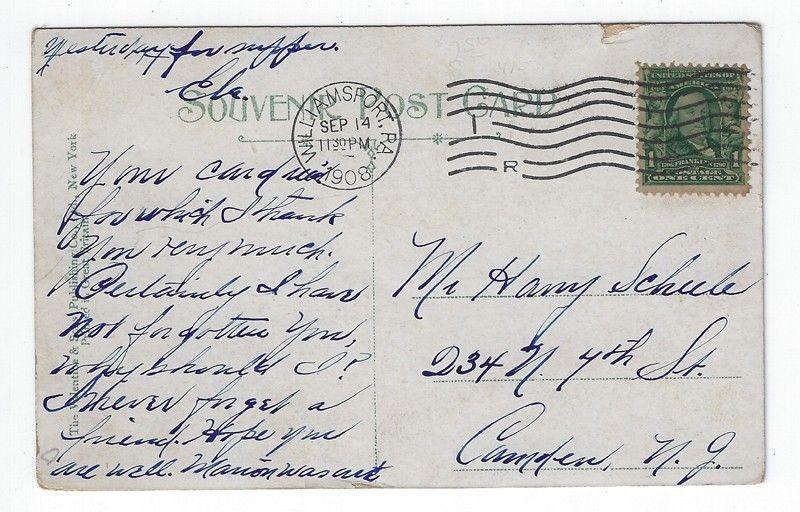 Yesterday for supper.
Ela.
SOUVENIR POST CARD
WILLIAMSPORT, PA.
SEP 14
11 30 PM
1908
I
R
UNITED STATES OF
AMERICA
1706 FRANKLIN 1790
POSTAGE
1 ONE CENT 1
Your card rec'd
for which I thank
you very much.
Certainly I have
not forgotten you,
why should I?
I never forget a
friend. Hope you
are well. Marion was out
The Valentine & Sons Publishing Co., Ltd., New York
Printed in Great Britain
Mr Harry Scheele
234 N 4th St.
Camden, N. J.